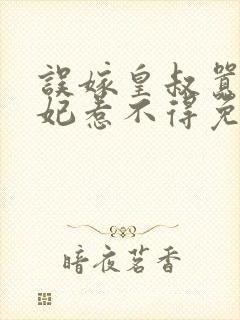 誤嫁皇叔囂
妃惹不得免
暗夜茗香